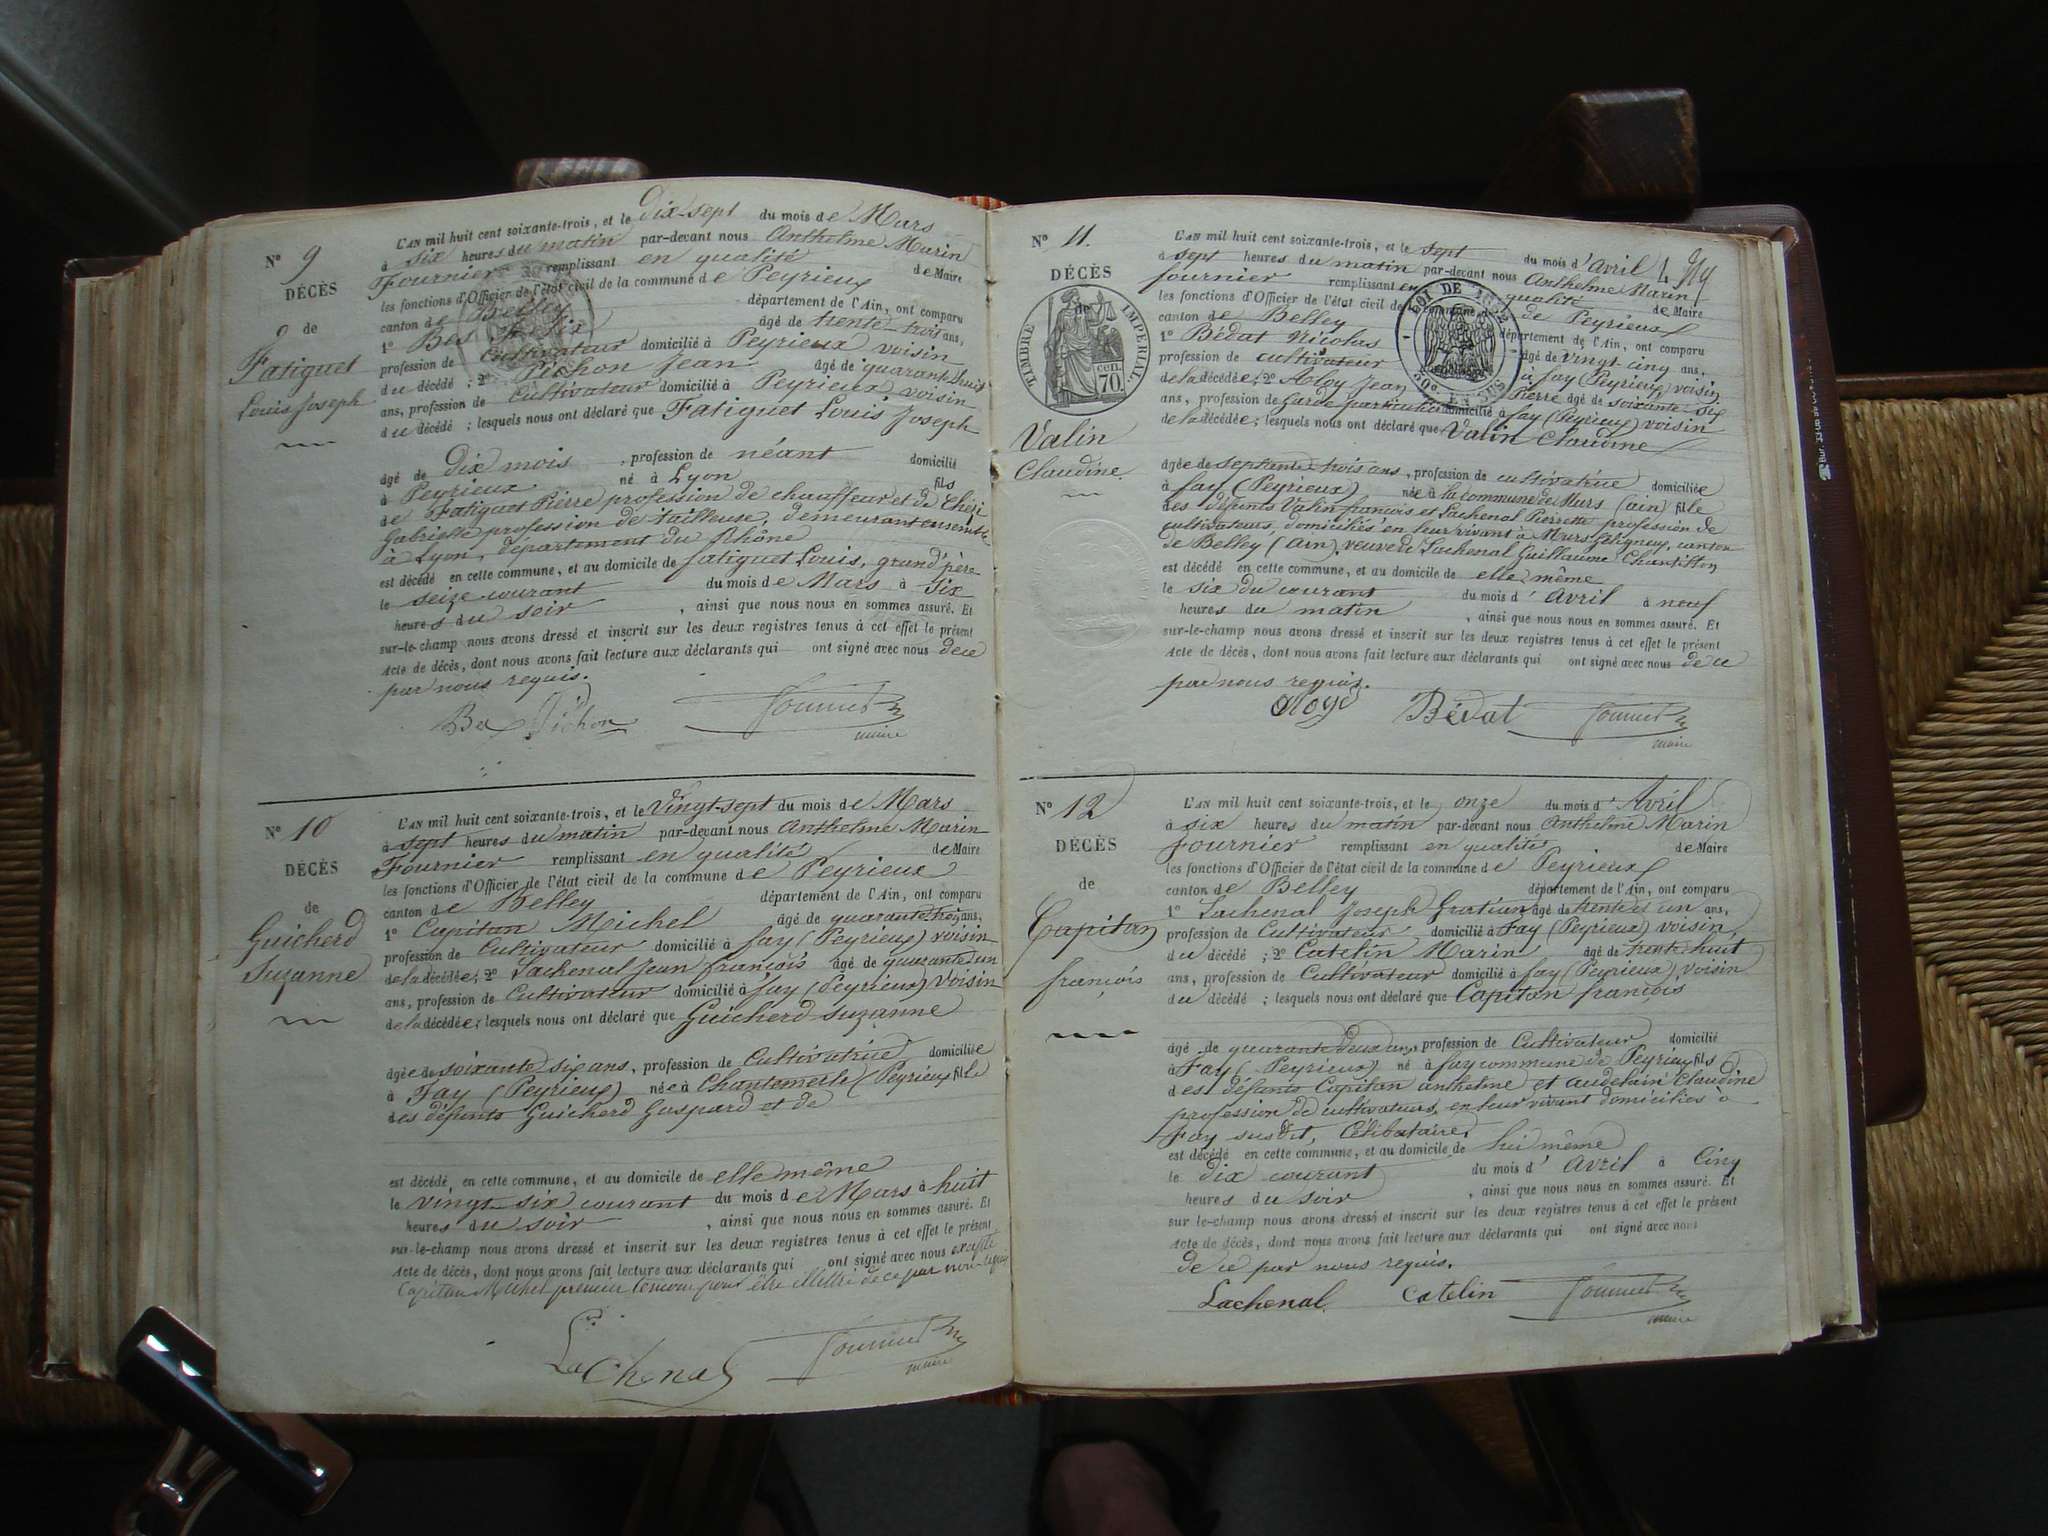 N° 9
DÉCÈS
de
Fatiguet
Louis Joseph
L'AN mil huit cent soixante-trois, et le Dix-sept du mois de Mars
à six heures du matin par-devant nous Anthelme Marin
Fournier remplissant en qualité de Maire
les fonctions d'Officier de l'état civil de la commune de Peyrieux
canton de Belley département de l'Ain, ont comparu
1° Bes Felix âgé de trente-trois ans,
profession de cultivateur domicilié à Peyrieux voisin
du décédé ; 2° Pichon Jean âgé de quarante huit
ans, profession de Cultivateur domicilié à Peyrieux voisin
du décédé ; lesquels nous ont déclaré que Fatiguet Louis Joseph
âgé de Dix mois , profession de néant domicilié
à Peyrieux né à Lyon fils
de Fatiguet Pierre profession de chauffeur et de
Gabrielle profession de tailleuse, demeurant ensemble
à Lyon, département du Rhône
est décédé en cette commune, et au domicile de fatiguet Louis, grand père
le seize courant du mois de Mars à Six
heures du soir , ainsi que nous nous en sommes assuré. Et
sur-le-champ nous avons dressé et inscrit sur les deux registres tenus à cet effet le présent
Acte de décès, dont nous avons fait lecture aux déclarants qui ont signé avec nous de ce
par nous requis.
Bes Pichon Fournier
maire
N° 10
DÉCÈS
de
Guicherd
Suzanne
L'AN mil huit cent soixante-trois, et le Vingt-sept du mois de Mars
à sept heures du matin par-devant nous Anthelme Marin
Fournier remplissant en qualité de Maire
les fonctions d'Officier de l'état civil de la commune de Peyrieux
canton de Belley département de l'Ain, ont comparu
1° Capitan Michel âgé de quarante trois ans,
profession de Cultivateur domicilié à fay (Peyrieux) voisin
de la décédée ; 2° Lachenal Jean françois âgé de quarante un
ans, profession de Cultivateur domicilié à fay (Peyrieux) voisin
de la décédée ; lesquels nous ont déclaré que Guicherd Suzanne
âgée de soixante six ans, profession de Cultivatrice domiciliée
à Fay (Peyrieux) née à Chantemerle (Peyrieux fille
des défunts Guicherd Gaspard et de
est décédé, en cette commune, et au domicile de elle même
le vingt-six courant du mois de Mars à huit
heures du soir , ainsi que nous nous en sommes assuré. Et
sur-le-champ nous avons dressé et inscrit sur les deux registres tenus à cet effet le présent
Acte de décès, dont nous avons fait lecture aux déclarants qui ont signé avec nous excepté
Capitan Michel premier temoin pour être illettré de ce par nous requis
Lachenal Fournier
maire
N° 11.
DÉCÈS
de
TIMBRE IMPÉRIAL
CEN. 70.
Valin
Claudine
L'AN mil huit cent soixante-trois, et le sept du mois d'avril
à sept heures du matin par-devant nous Anthelme Marin
fournier remplissant en qualité de Maire
les fonctions d'Officier de l'état civil de la commune de Peyrieux
canton de Belley département de l'Ain, ont comparu
LOI DE
50e EN SUS
1° Bédat Nicolas âgé de vingt cinq ans,
profession de cultivateur à fay (Peyrieux) voisin
de la décédée ; 2° Aloy Jean Pierre âgé de soixante-six
ans, profession de Garde particulier domicilié à fay (Peyrieux) voisin
de la décédée ; lesquels nous ont déclaré que Valin Claudine
âgée de septante trois ans, profession de cultivatrice domiciliée
à fay (Peyrieux) née à la commune de Murs (ain) fille
des défunts Valin francois et Lachenal Pierrette profession de
cultivateurs, domiciliés en leur vivant à Murs Gélignieux, canton
de Belley (Ain), veuve de Lachenal Guillaume
est décédé en cette commune, et au domicile de elle même
le six du courant du mois d'avril à neuf
heures du matin , ainsi que nous nous en sommes assuré. Et
sur-le-champ nous avons dressé et inscrit sur les deux registres tenus à cet effet le présent
Acte de décès, dont nous avons fait lecture aux déclarants qui ont signé avec nous de ce
par nous requis.
Bédat Fournier
maire
N° 12
DÉCÈS
de
Capitan
françois
L'AN mil huit cent soixante-trois, et le onze du mois d'Avril
à six heures du matin par-devant nous Anthelme Marin
Fournier remplissant en qualité de Maire
les fonctions d'Officier de l'état civil de la commune de Peyrieux
canton de Belley département de l'Ain, ont comparu
1° Lachenal Joseph Gratian âgé de trente et un ans,
profession de Cultivateur domicilié à Fay (Peyrieux) voisin
du décédé ; 2° Catelin Marin âgé de trente-huit
ans, profession de Cultivateur domicilié à fay (Peyrieux) voisin
du décédé ; lesquels nous ont déclaré que Capitan françois
âgé de quarante deux ans, profession de Cultivateur domicilié
à Fay (Peyrieux) né à fay commune de Peyrieux fils
des défunts Capitan anthelme et Claudine
profession de cultivateurs, en leur vivant domiciliés à
Fay susdit, Célibataire,
est décédé en cette commune, et au domicile de lui même
le dix courant du mois d'Avril à Cinq
heures du soir , ainsi que nous nous en sommes assuré. Et
sur le-champ nous avons dressé et inscrit sur les deux registres tenus à cet effet le présent
Acte de décès, dont nous avons fait lecture aux déclarants qui ont signé avec nous
de ce par nous requis.
Lachenal Catelin Fournier
maire